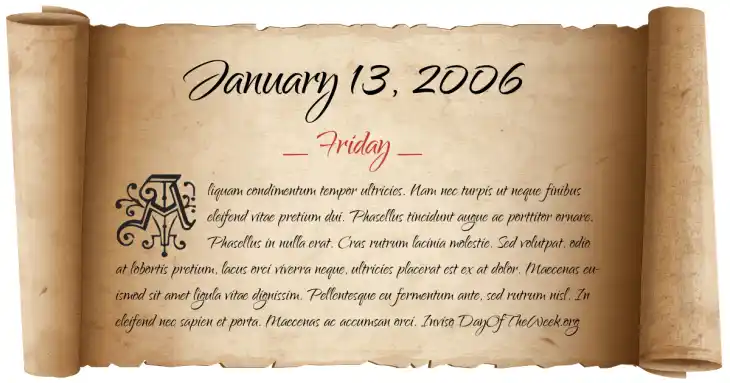 January 13, 2006
— Friday —
Aliquam condimentum tempor ultricies. Nam nec turpis ut neque finibus
eleifend vitae pretium dui. Phasellus tincidunt augue ac porttitor ornare.
Phasellus in nulla erat. Cras rutrum lacinia molestie. Sed volutpat, odio
at lobortis pretium, lacus orci viverra neque, ultricies placerat est ex at dolor. Maecenas eu-
ismod sit amet ligula vitae dignissim. Pellentesque eu fermentum ante, sed rutrum nisl. In
eleifend nec sapien et porta. Maecenas ac accumsan orci. Invisq DayOfTheWeek.org